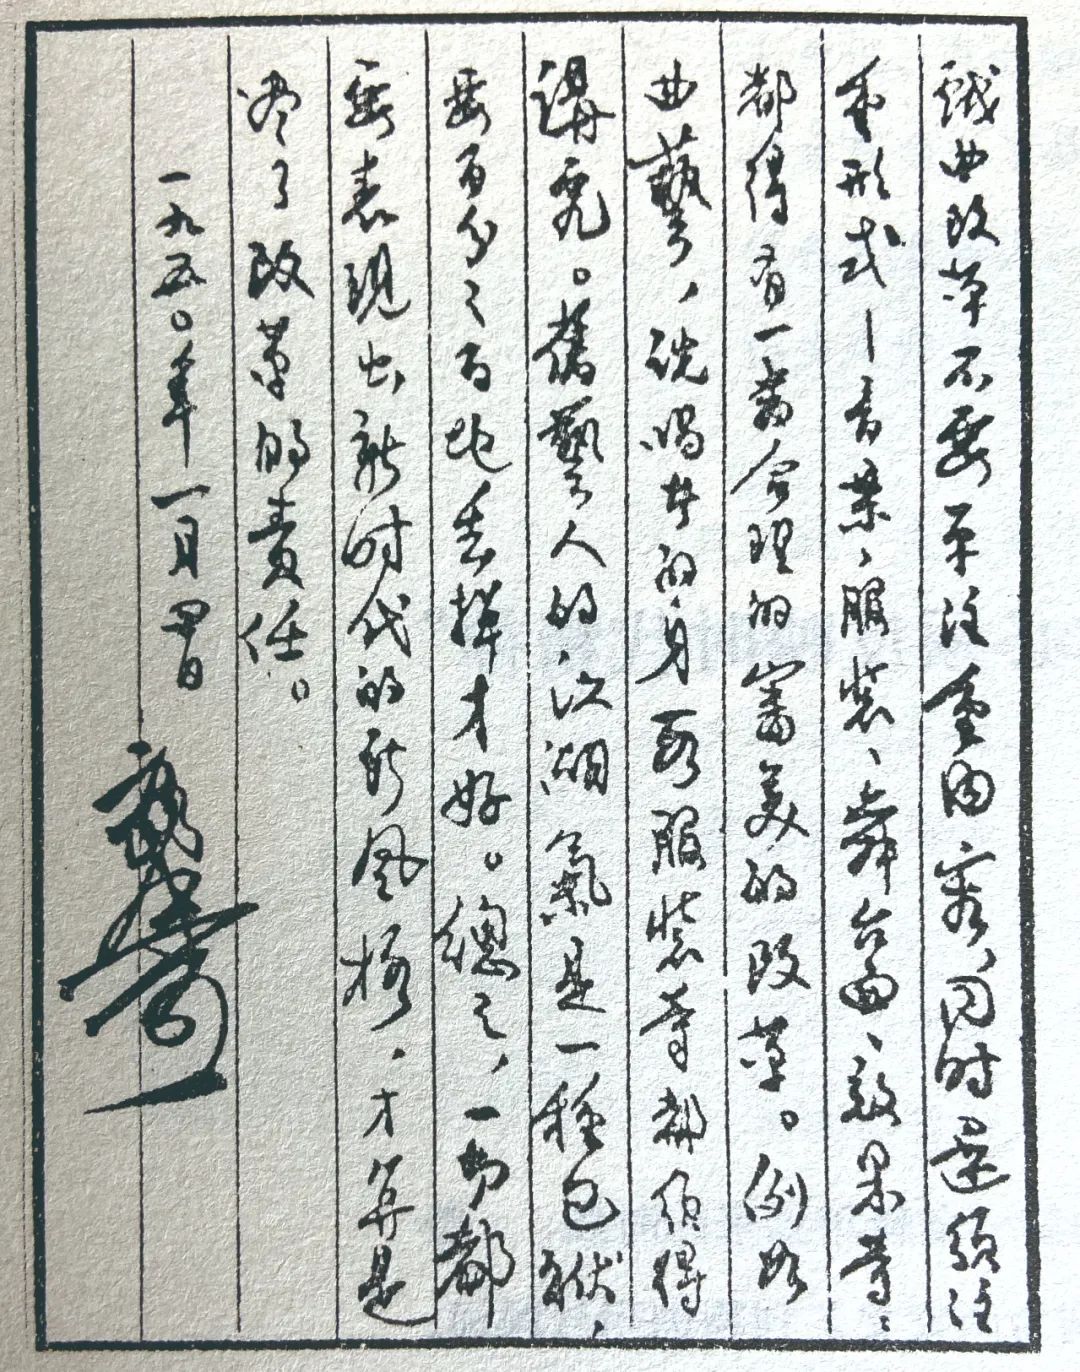 戲曲改革不要单注重内容、同时還须注
重形式—音樂、服裝、舞台面、效果等：
都得有一番合理的審美的改革。例如
曲藝，说唱者的身段服裝等都须得
講究。舊藝人的江湖氣是一種包袱，
要百分之百地丢掉才好。總之，一切都
要表现出新时代的新风格，才算是
尽了改革的責任。
一九五〇年一月四日